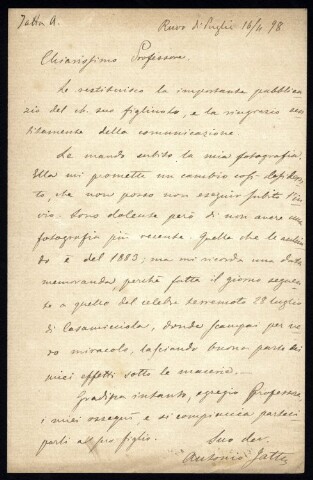 Jatta A.
Ruvo di Puglia 16/4 98
Chiarissimo Professore.
Le restituisco la importante pubblica-
zio del ch. suo figliuolo, e la ringrazio sen-
titamente della comunicazione.
Le mando subito la mia fotografia.
Ella mi promette un cambio così
to, che non posso non eseguir subito l'in-
vio. Sono dolente però di non avere una
fotografia più recente. Quella che le
do è del 1883; ma mi ricorda una data
memoranda, perchè fatta il giorno seguen-
te a quello del celebre terremoto 28 luglio
di Casamicciola, donde scampai per ve-
ro miracolo, lasciando buona parte dei
miei effetti sotto le macerie.
Gradisca intanto, egregio Professore,
i miei ossequi, e si compiaccia parteci-
parli al figlio.
Suo dev.
Antonio Jatta